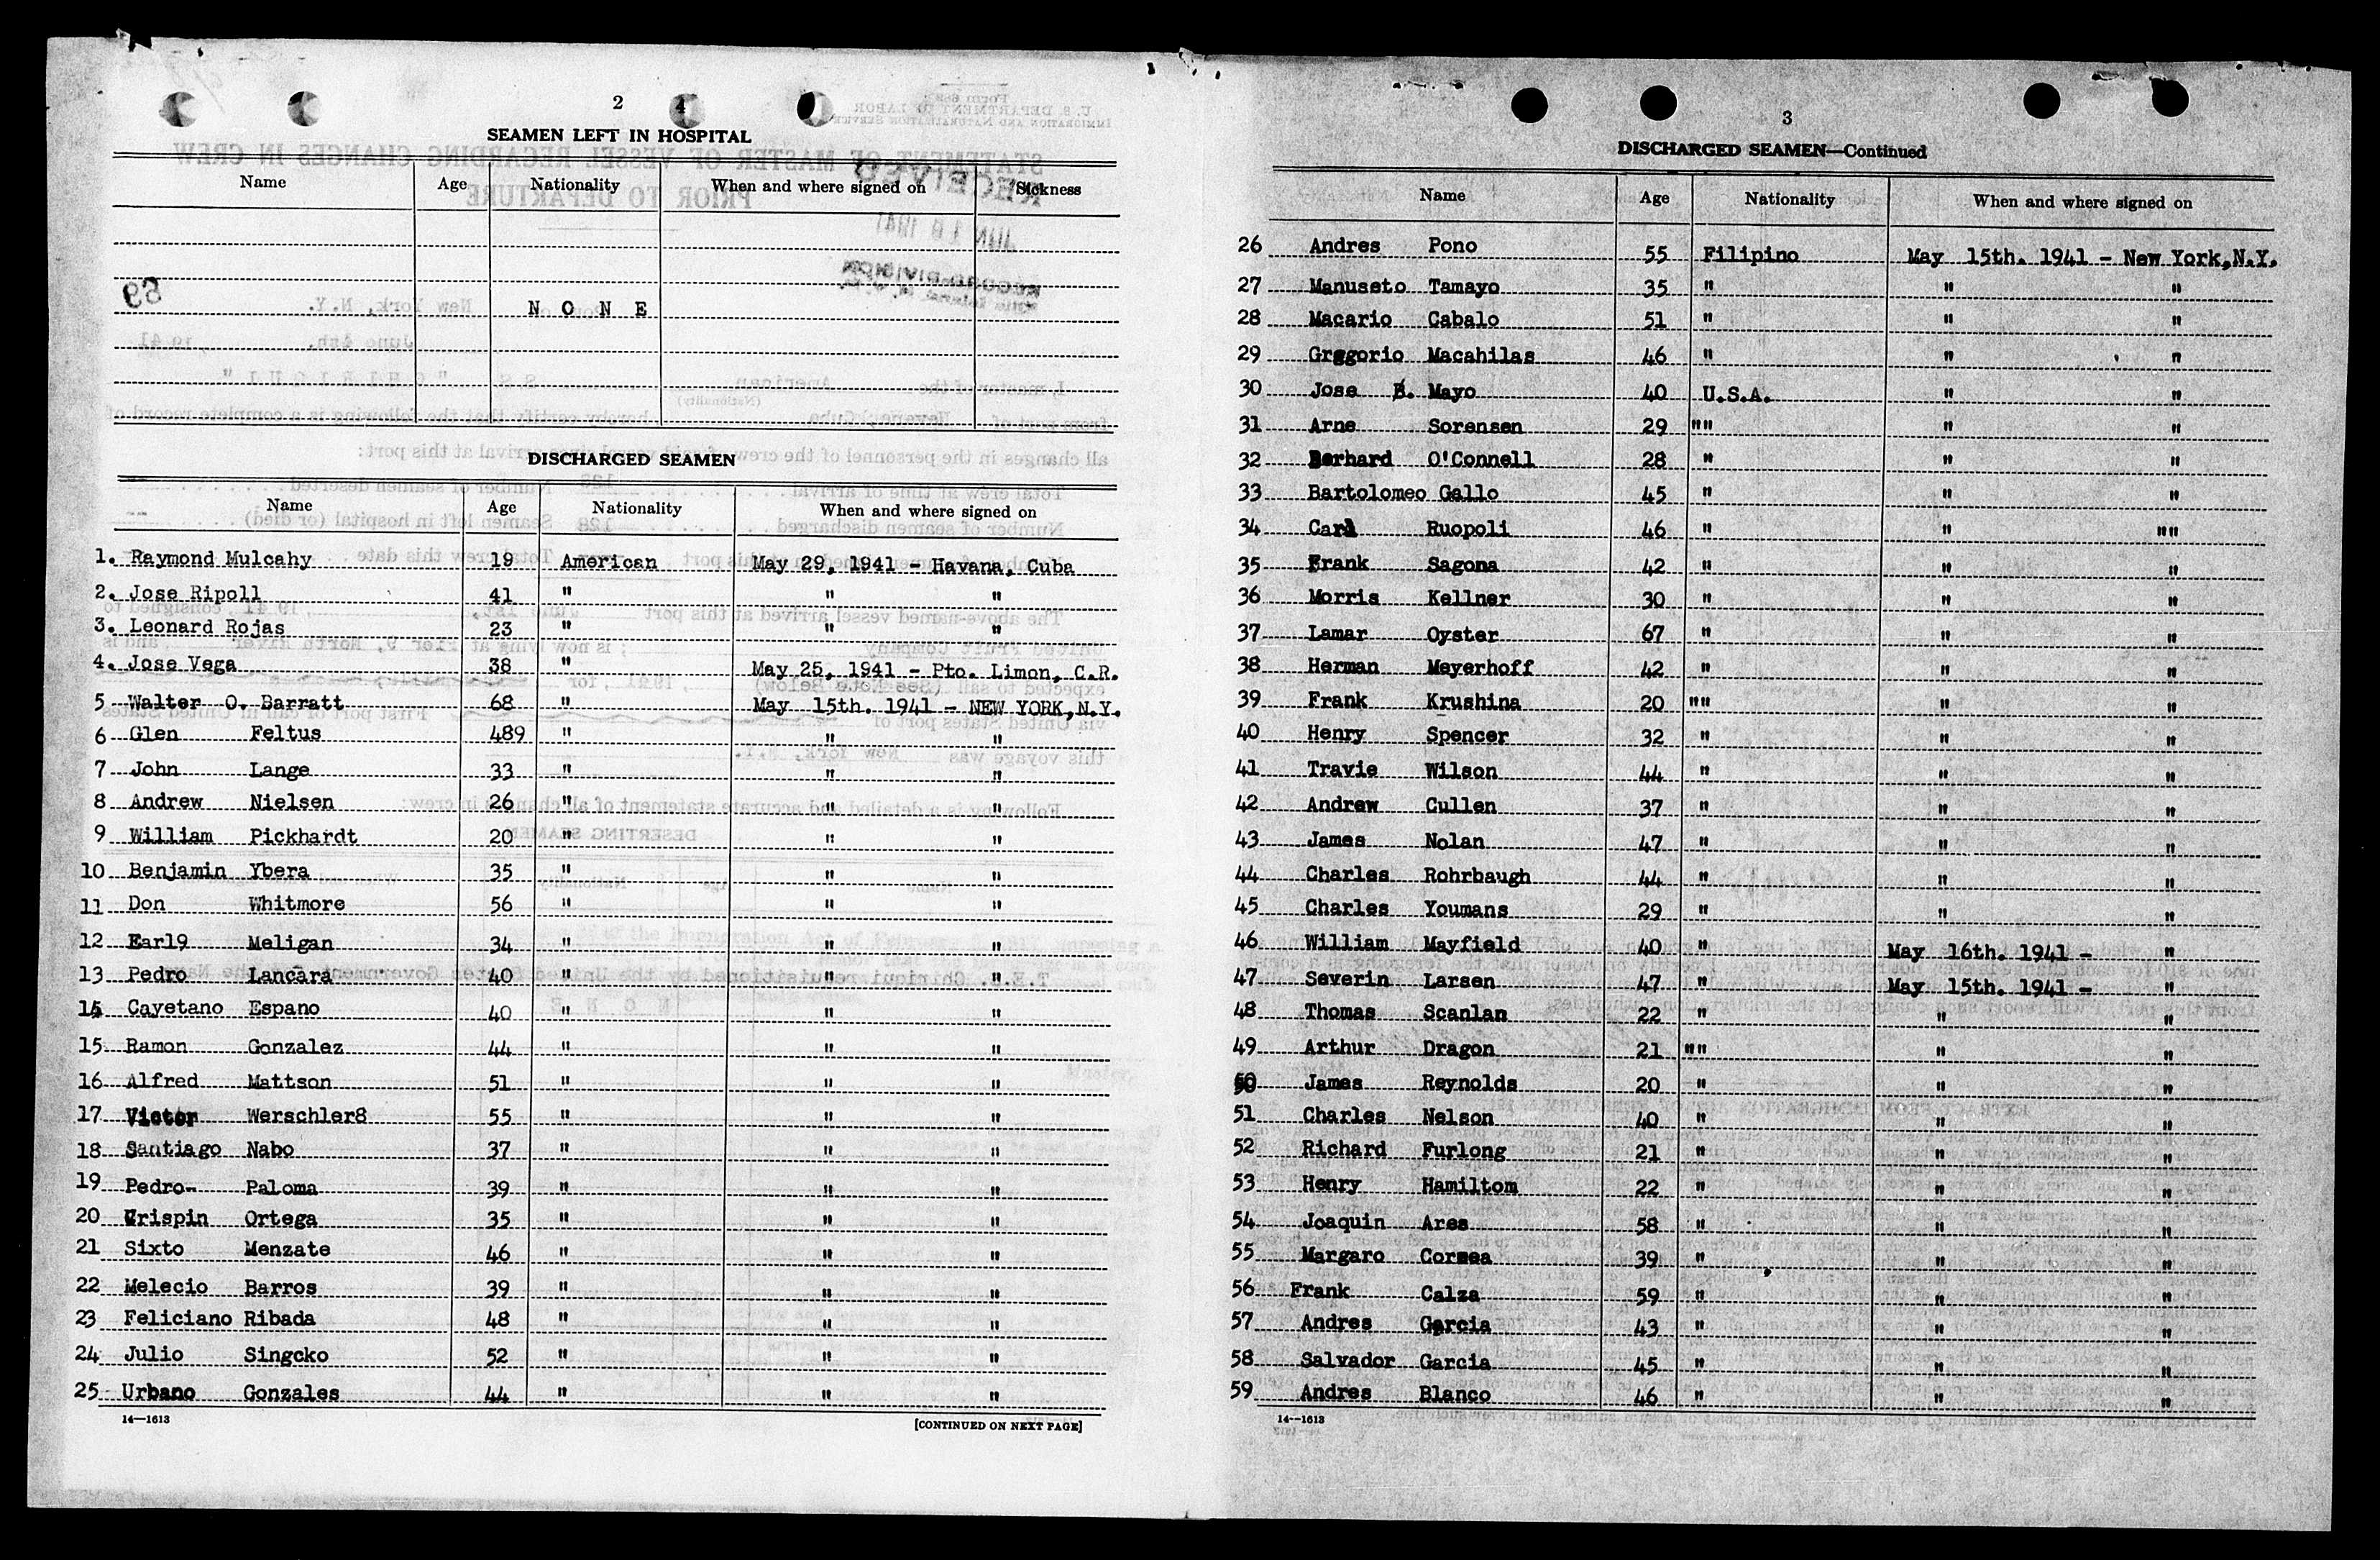 2 4
SEAMEN LEFT IN HOSPITAL
Name Age Nationality When and where signed on Sickness
N O N E
DISCHARGED SEAMEN
Name Age Nationality When and where signed on
1. Raymond Mulcahy 19 American May 29, 1941 - Havana, Cuba
2. Jose Ripoll 41 " " "
3. Leonard Rojas 23 " " "
4. Jose Vega 38 " May 25, 1941 - Pto. Limon, C.R.
5 Walter O. Barratt 68 " May 15th. 1941 - NEW YORK,N.Y.
6 Glen Feltus 489 " " "
7 John Lange 33 " " "
8 Andrew Nielsen 26 " " "
9 William Pickhardt 20 " " "
10 Benjamin Ybera 35 " " "
11 Don Whitmore 56 " " "
12 Earl9 Meligan 34 " " "
13 Pedro Lancara 40 " " "
14 Cayetano Espano 40 " " "
15 Ramon Gonzalez 44 " " "
16 Alfred Mattson 51 " " "
17 Victor Werschler8 55 " " "
18 Santiago Nabo 37 " " "
19 Pedro- Paloma 39 " " "
20 Crispin Ortega 35 " " "
21 Sixto Menzate 46 " " "
22 Melecio Barros 39 " " "
23 Feliciano Ribada 48 " " "
24 Julio Singcko 52 " " "
25 Urbano Gonzales 44 " " "
14—1613 [CONTINUED ON NEXT PAGE]
3
DISCHARGED SEAMEN—Continued
Name Age Nationality When and where signed on
26 Andres Pono 55 Filipino May 15th. 1941 - New York,N.Y.
27 Manuseto Tamayo 35 " " "
28 Macario Cabalo 51 " " "
29 Gregorio Macahilas 46 " " "
30 Jose B. Mayo 40 U.S.A. " "
31 Arne Sorensen 29 "" " "
32 Berhard O'Connell 28 " " "
33 Bartolomeo Gallo 45 " " "
34 Carl Ruopoli 46 " " ""
35 Frank Sagona 42 " " "
36 Morris Kellner 30 " " "
37 Lamar Oyster 67 " " "
38 Herman Meyerhoff 42 " " "
39 Frank Krushina 20 "" " "
40 Henry Spencer 32 " " "
41 Travie Wilson 44 " " "
42 Andrew Cullen 37 " " "
43 James Nolan 47 " " "
44 Charles Rohrbaugh 44 " " "
45 Charles Youmans 29 " " "
46 William Mayfield 40 " May 16th. 1941 - "
47 Severin Larsen 47 " May 15th. 1941 - "
48 Thomas Scanlan 22 " " "
49 Arthur Dragon 21 "" " "
50 James Reynolds 20 " " "
51 Charles Nelson 40 " " "
52 Richard Furlong 21 " " "
53 Henry Hamiltom 22 " " "
54 Joaquin Ares 58 " " "
55 Margaro 39 " " "
56 Frank Calza 59 " " "
57 Andres Garcia 43 " " "
58 Salvador Garcia 45 " " "
59 Andres Blanco 46 " " "
14—1613